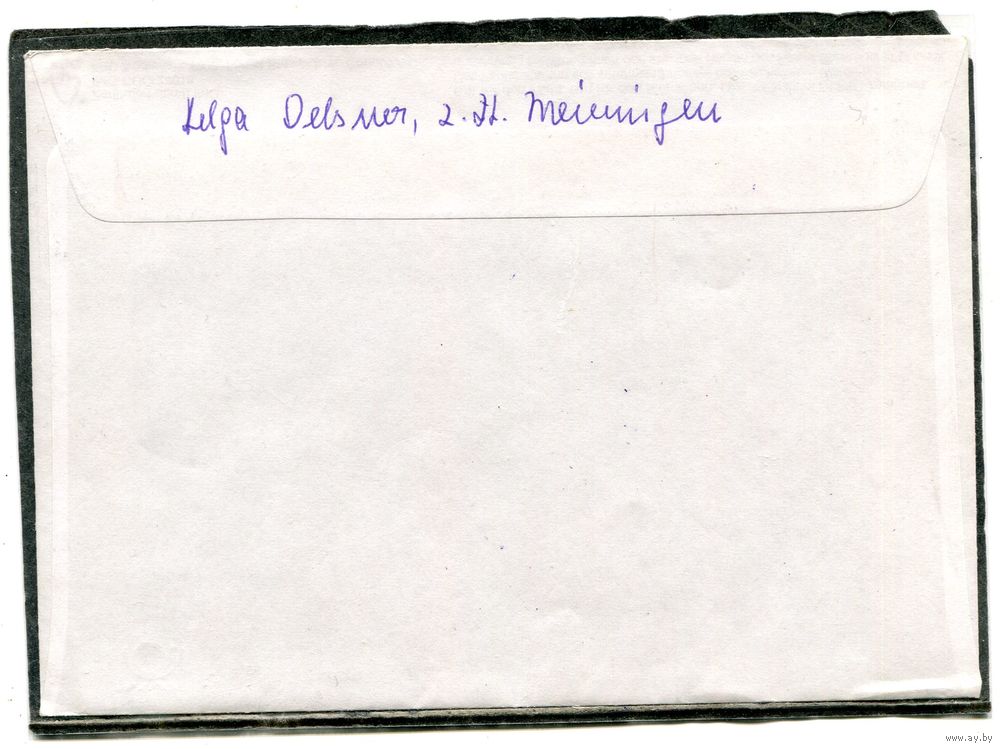 Helga Oelsner, z. Zt. Meiningen
www.ay.by